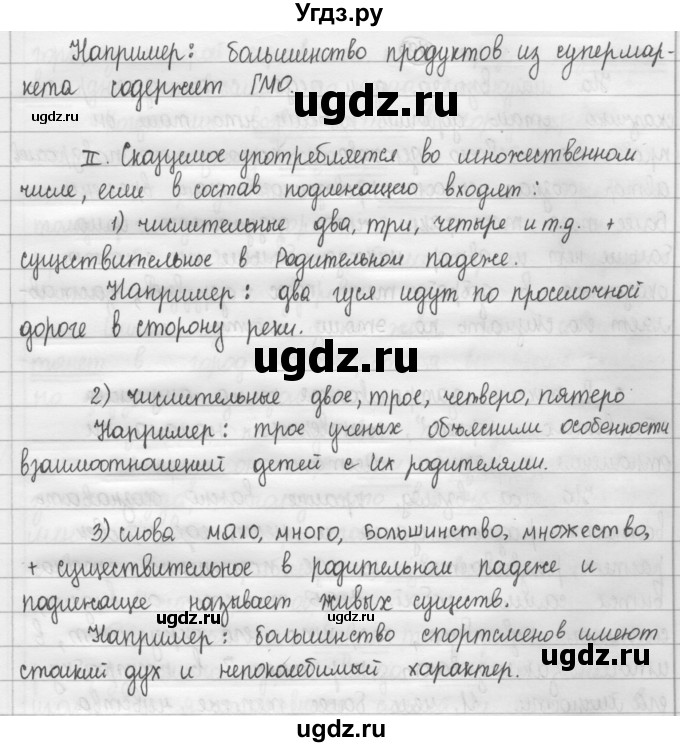 Угдз.ру
Например: большинство продуктов из супермар-
кета содержит ГМО.
ugdz.ru
ugdz.ru
II. Сказуемое употребляется во множественном
числе, если в состав подлежащего входят:
1) числительные два, три, четыре и т.д. +
существительное в Родительном падеже.
Например: два гуся идут по проселочной
дороге в сторону реки.
ugdz.ru
2) числительные двое, трое, четверо, пятеро
Например: трое ученых объяснили особенности
взаимоотношений детей с их родителями.
ugdz.ru
3) слова мало, много, большинство, множество,
+ существительное в родительном падеже и
подлежащее называет живых существ.
ugdz.ru
ugdz.ru
Например: большинство спортсменов имеют
стойкий дух и непоколебимый характер.
ugdz.ru
ugdz.ru